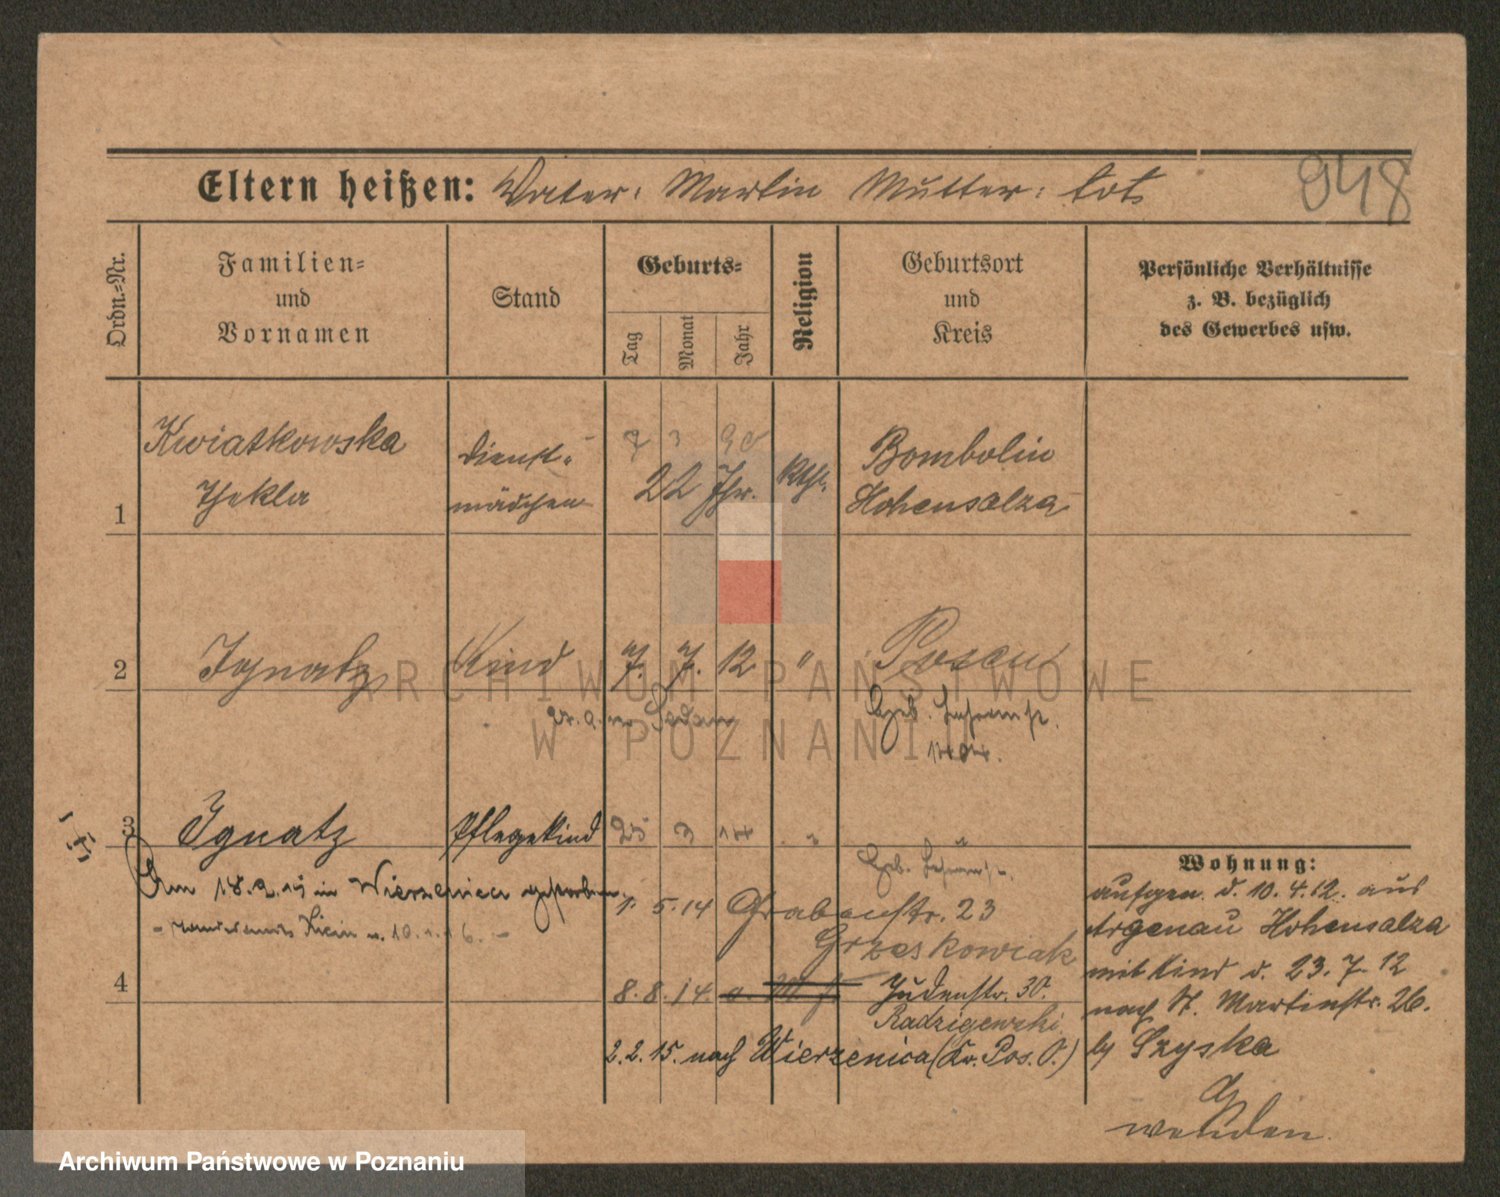 948
Eltern heißen: Vater: Martin Mutter: tot
Ordn.=Nr.
Familien=
und
Vornamen
Stand
Geburts=
Tag
Monat
Jahr
Religion
Geburtsort
und
Kreis
Persönliche Verhältnisse
z. B. bezüglich
des Gewerbes usw.
1
Kwiatkowska
Thekla
Dienst=
mädchen
7 3 90
22 Jhr.
Kth.
Bombolin
Hohensalza
2
Ignatz
Kind
7. 7. 12
"
Posen
Geb.
3
Ignatz
Pflegekind
25 3 14
"
Am 18.2.15 in Wierzenica gestorben
Geb.
1. 5. 14 Grabenstr. 23
Grzeskowiak
4
8. 8. 14
Judenstr. 30.
Radzigewski
2. 2. 15. nach Wierzenica (Kr. Pos. O.)
Wohnung:
aufgen. d. 10. 4. 12. aus
Argenau Hohensalza
mit Kind d. 23. 7. 12
nach St. Martinstr. 26.
by Szyska
wenden.
ARCHIWUM PAŃSTWOWE
W POZNANIU
Archiwum Państwowe w Poznaniu